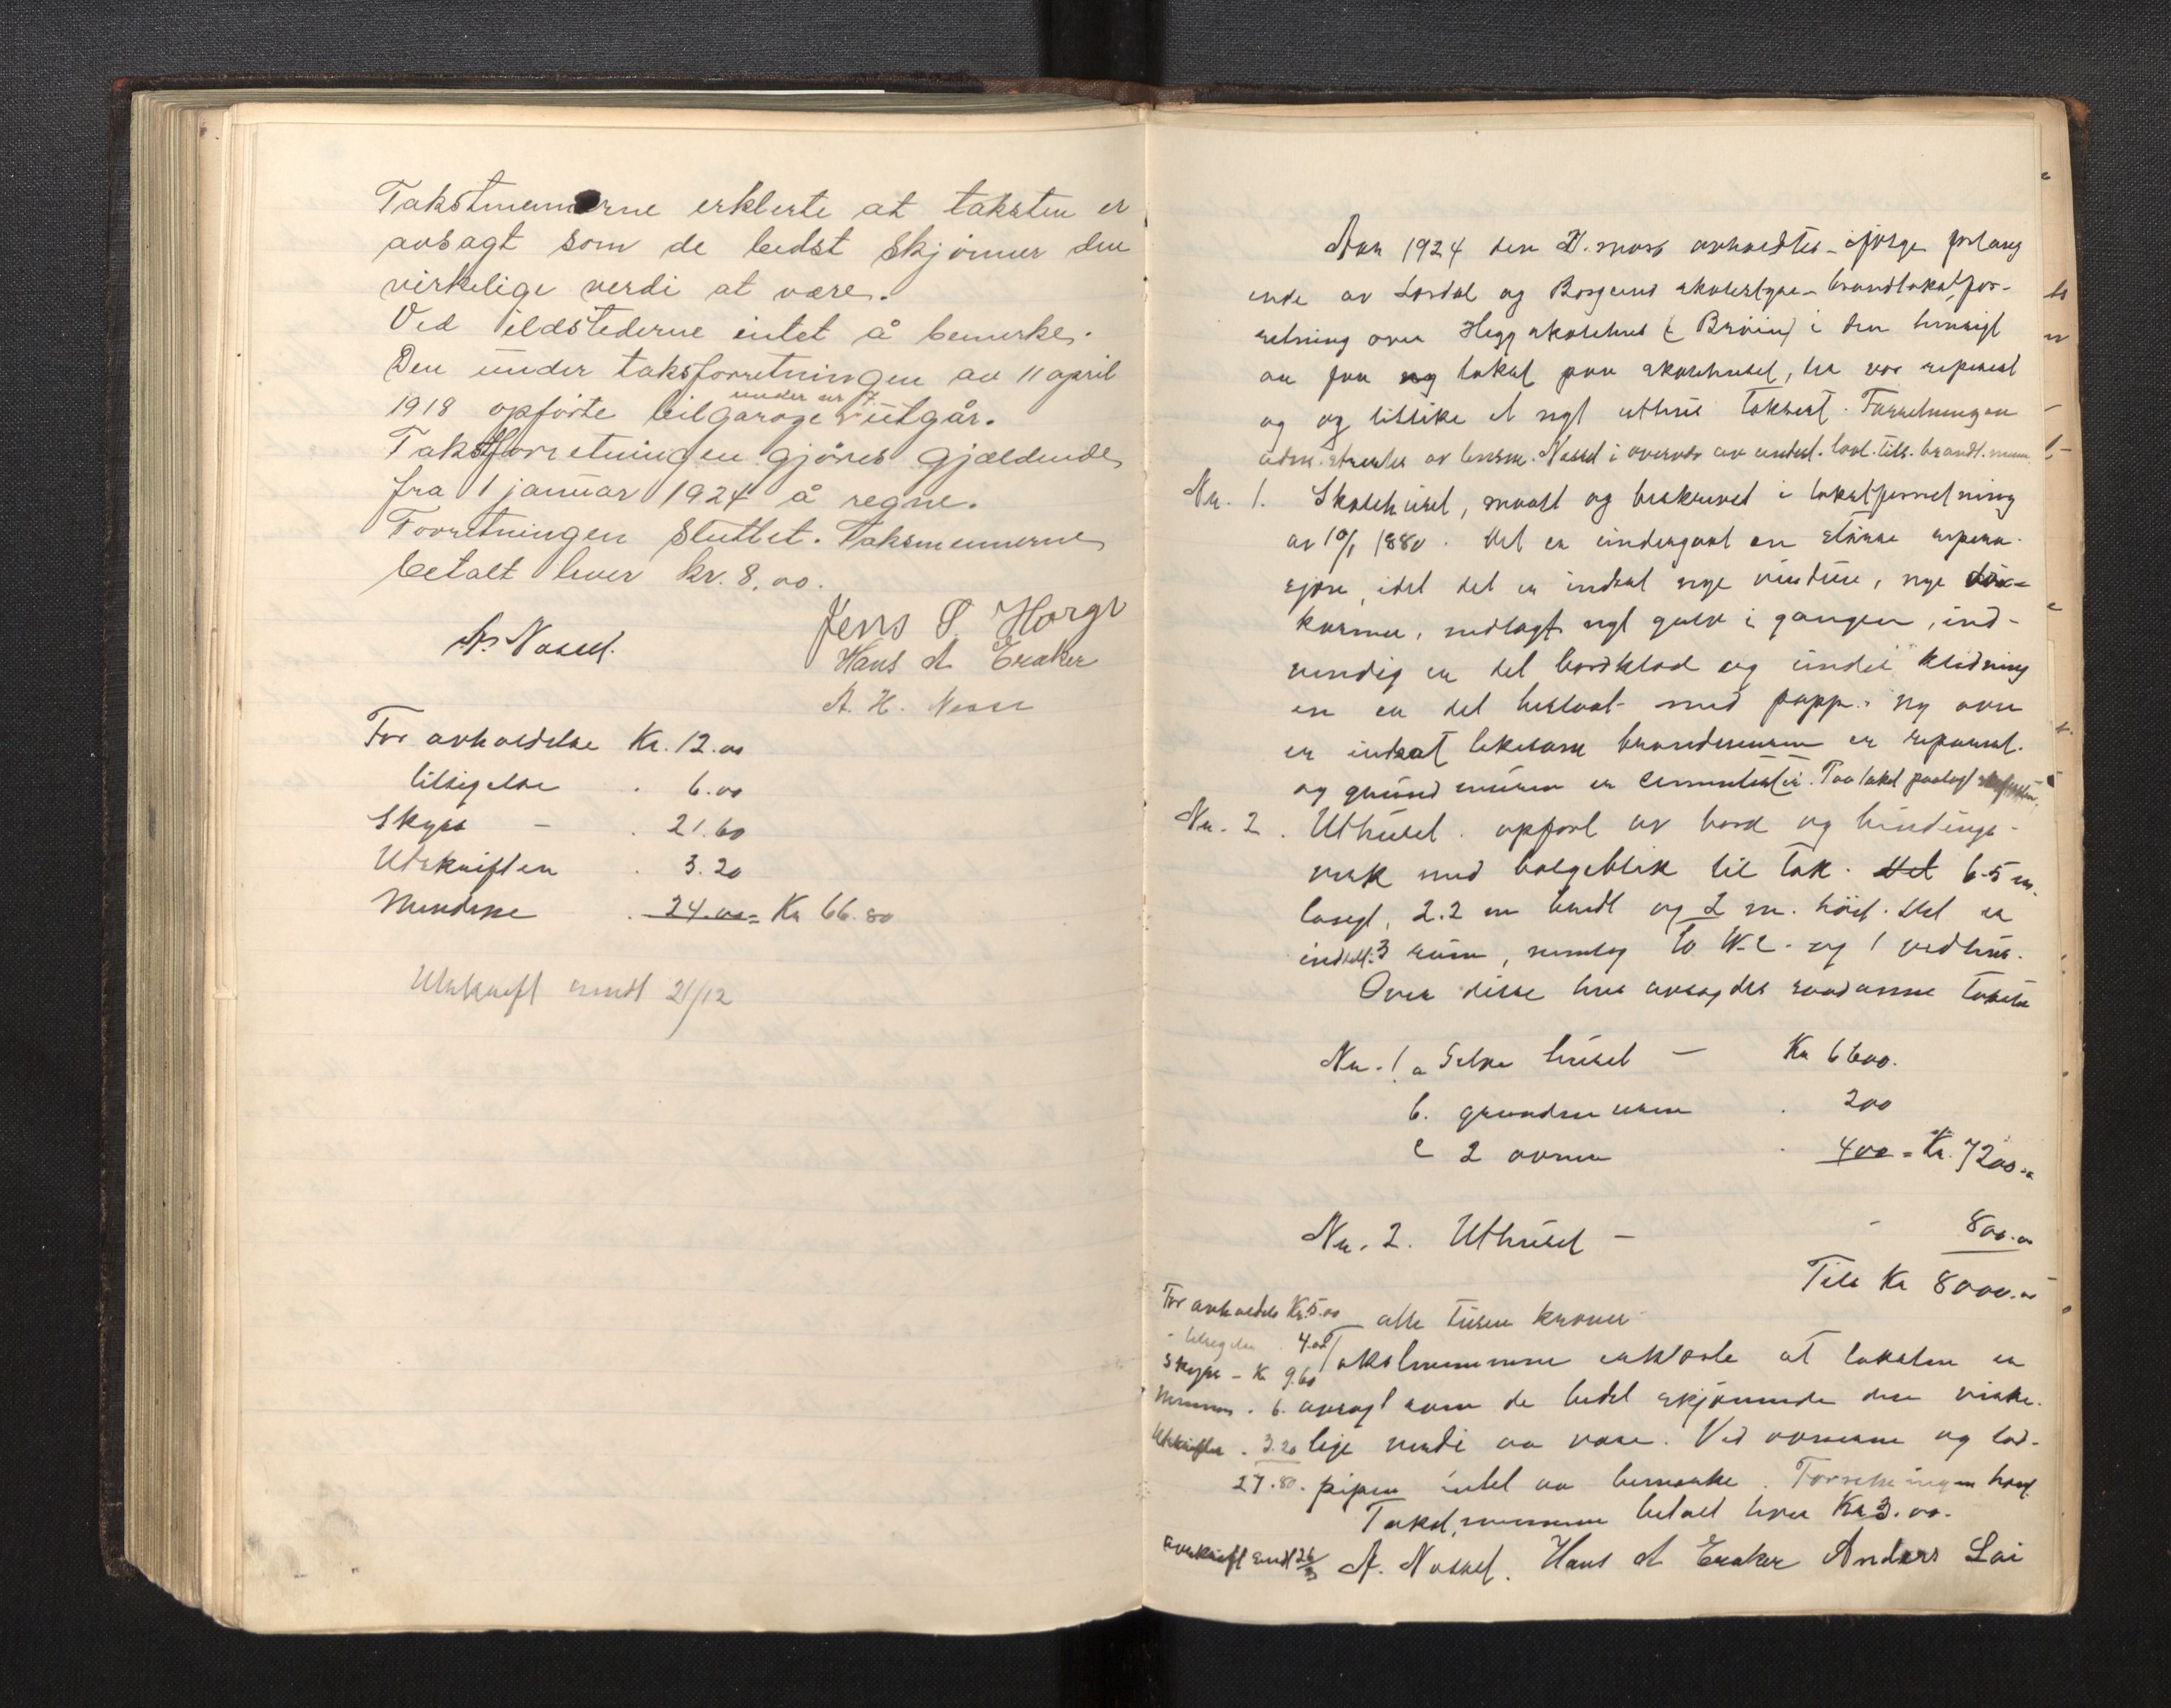 Takstmennerne erklerte at taksten er
avsagt som de bedst skjønner den
virkelige verdi at være.
Ved ildstederne intet å bemerke.
Den under taksforretningen av 11 april
under nr 7.
1918 opførte bilgarage utgår.
Taksforretningen gjøres gjældende
fra 1 januar 1924 å regne.
Forretningen sluttet. Taksmennerne
betalt hver kr. 8.00.
A. Nossel.
Jens P. Horge
Hans A Eraker
A. H. Ness
For avholdelse Kr. 12.00
tilsigelse . 6.00
Skyss - . 21.60
Utskriften . 3.20
Mendene . 24.00 = Kr 66.80
Utskrift sendt 21/12
Aar 1924 den mars avholdtes ifølge forlang
ende av Lærdal og Borgund skolestyre brandtakstfor-
retning over Hegg skolehus i Borgund i den hensigt
aa faa takst paa skolehuset, der var reparert
og og tillike et nyt uthus takseret. Forretningen
adm. av lensm. Nossel i overvær av undert. lovl. tils. brandt.menn
Nr. 1. Skolehuset, maalt og beskrevet i takstforretning
av 10/1 1880. Det er undergaat en større repera-
sjon, idet det er indsat nye vinduer, nye dør-
karmer, nedlagt nyt gulv i gangen, ind-
vendig er det bordklæd og under klædning
en er det beslaat med papp. ny ovn
er indsat likesom brandmuren er reparert
og grundmuren er cementert. Paa taket paalagt
Nr. 2. Uthuset. opført av bord og bindings-
verk med bølgeblik til tak. Det 6.5 m.
langt, 2.2 m bredt og 2 m. høit. Det er
inddelt 3 rum, nemlig to W.C. og 1 vedhus.
Over disse hus avsagdes saadanne takster
Nr. 1 a Selve huset — Kr 6600.
b. grundmuren . 200
c 2 ovner . 400 = Kr. 7200.00
Nr. 2. Uthuset — - 800.00
Tils Kr 8000.00
For avholdels Kr. 5.00 otte tusen kroner
- tilsigelse . 4.00 Takstmennene erklærte at taksten er
Skyss - Kr 9.60 avsagt som de bedst skjønnede den virke-
Mennene . 6. lige verdi aa være. Ved ovnerne og lod-
Utskriften . 3.20 pipen intet aa bemerke. Forretningen hævet
27.80. Takstmennene betalt hver Kr 3.00.
Avskrift sendt 26/3 A. Nossel. Hans A Eraker Anders Lai